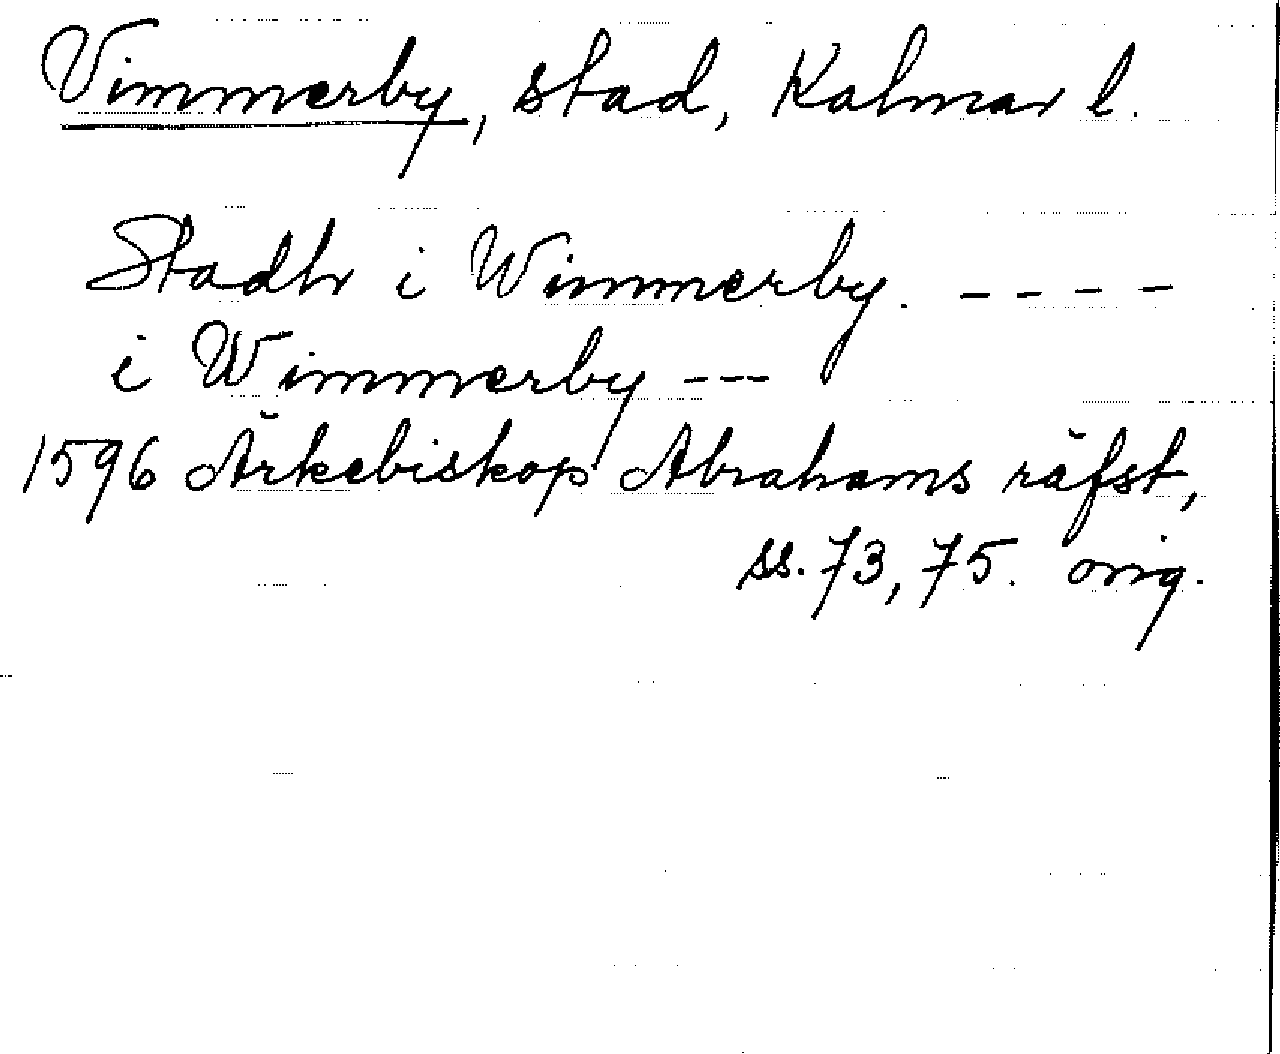 Vimmerby, stad, Kalmar l.
Stadh i Wimmerby. - - - -
i Wimmerby ---
1596 Ärkebiskop Abrahams räfst,
ss. 73, 75. orig.